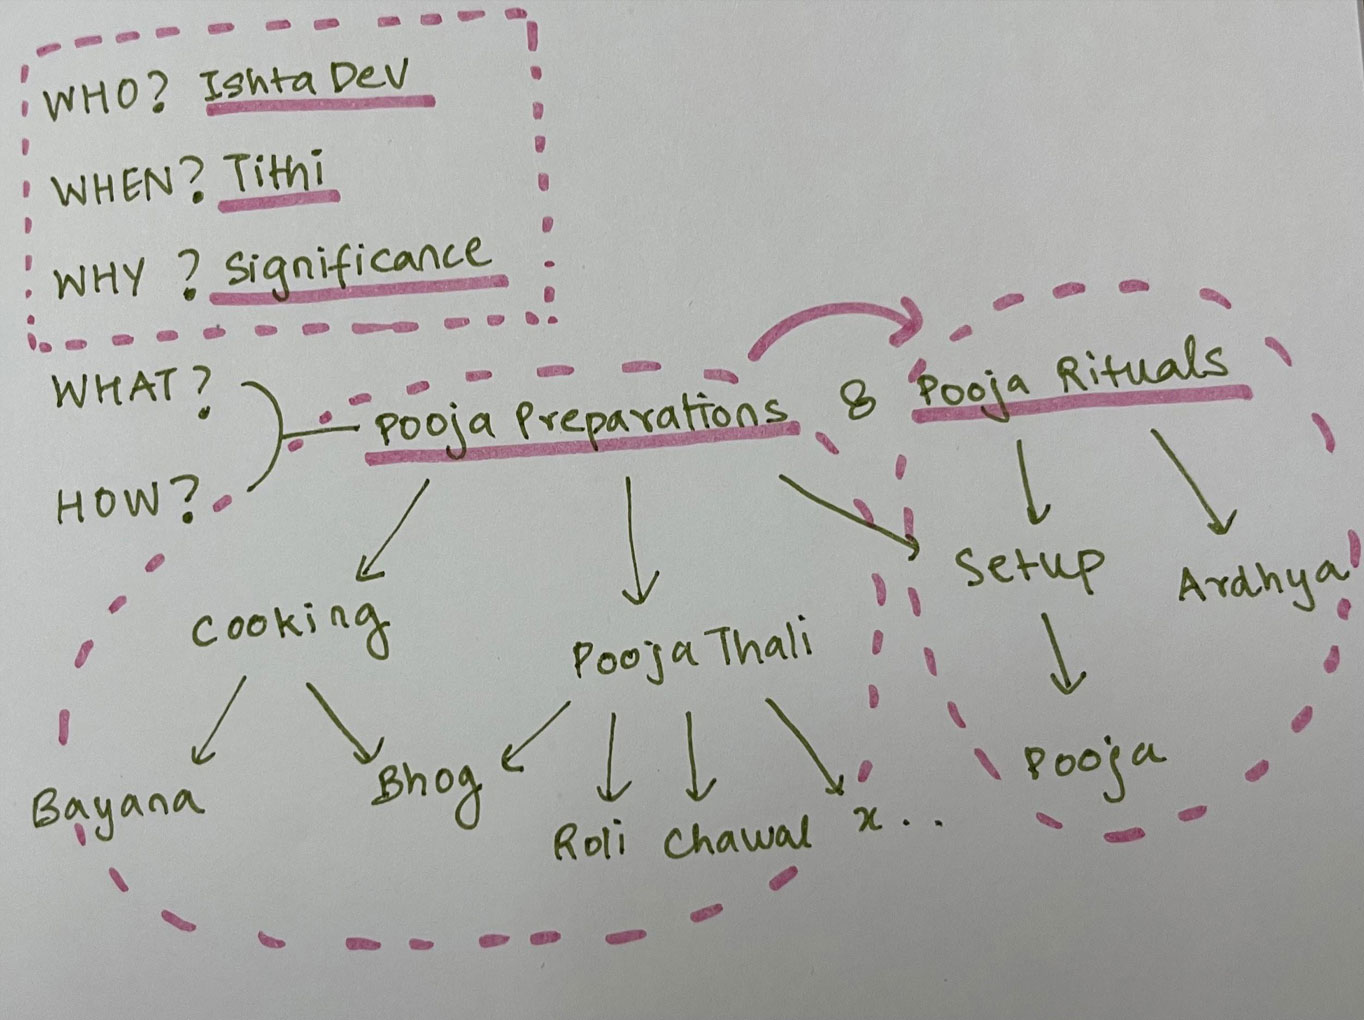 WHO? Ishta Dev
WHEN? Tithi
WHY ? Significance
WHAT?
HOW?
Pooja Preparations & Pooja Rituals
Cooking
Pooja Thali
Setup
Ardhya
Bayana
Bhog
Roli
Chawal
x . .
Pooja